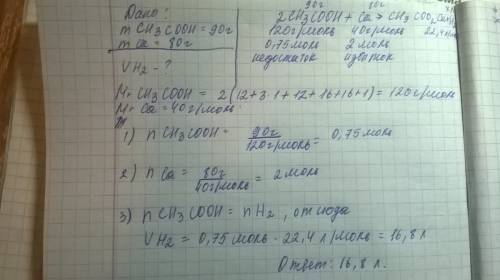 Дано:
m CH3COOH = 90г
m Ca = 80г
VH2 - ?
90г 80г
2CH3COOH + Ca > CH3COO
120г/моль 40г/моль 22,4
0,75моль 2 моль
недостаток избыток
Mr CH3COOH = 2(12+3·1+12+16+16+1) = 120г/моль
Mr Ca = 40г/моль
1) n CH3COOH = 90г/120г/моль = 0,75 моль
2) n Ca = 80г/40г/моль = 2 моль
3) n CH3COOH = n H2, отсюда
VH2 = 0,75 моль · 22,4 л/моль = 16,8 л
Ответ: 16,8 л.